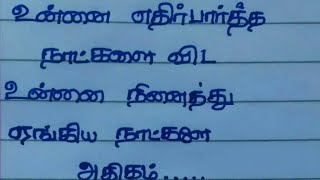 உன்னை எதிர்பார்த்த
நாட்களை விட
உன்னை நினைத்து
ஏங்கிய நாட்களே
அதிகம்.....